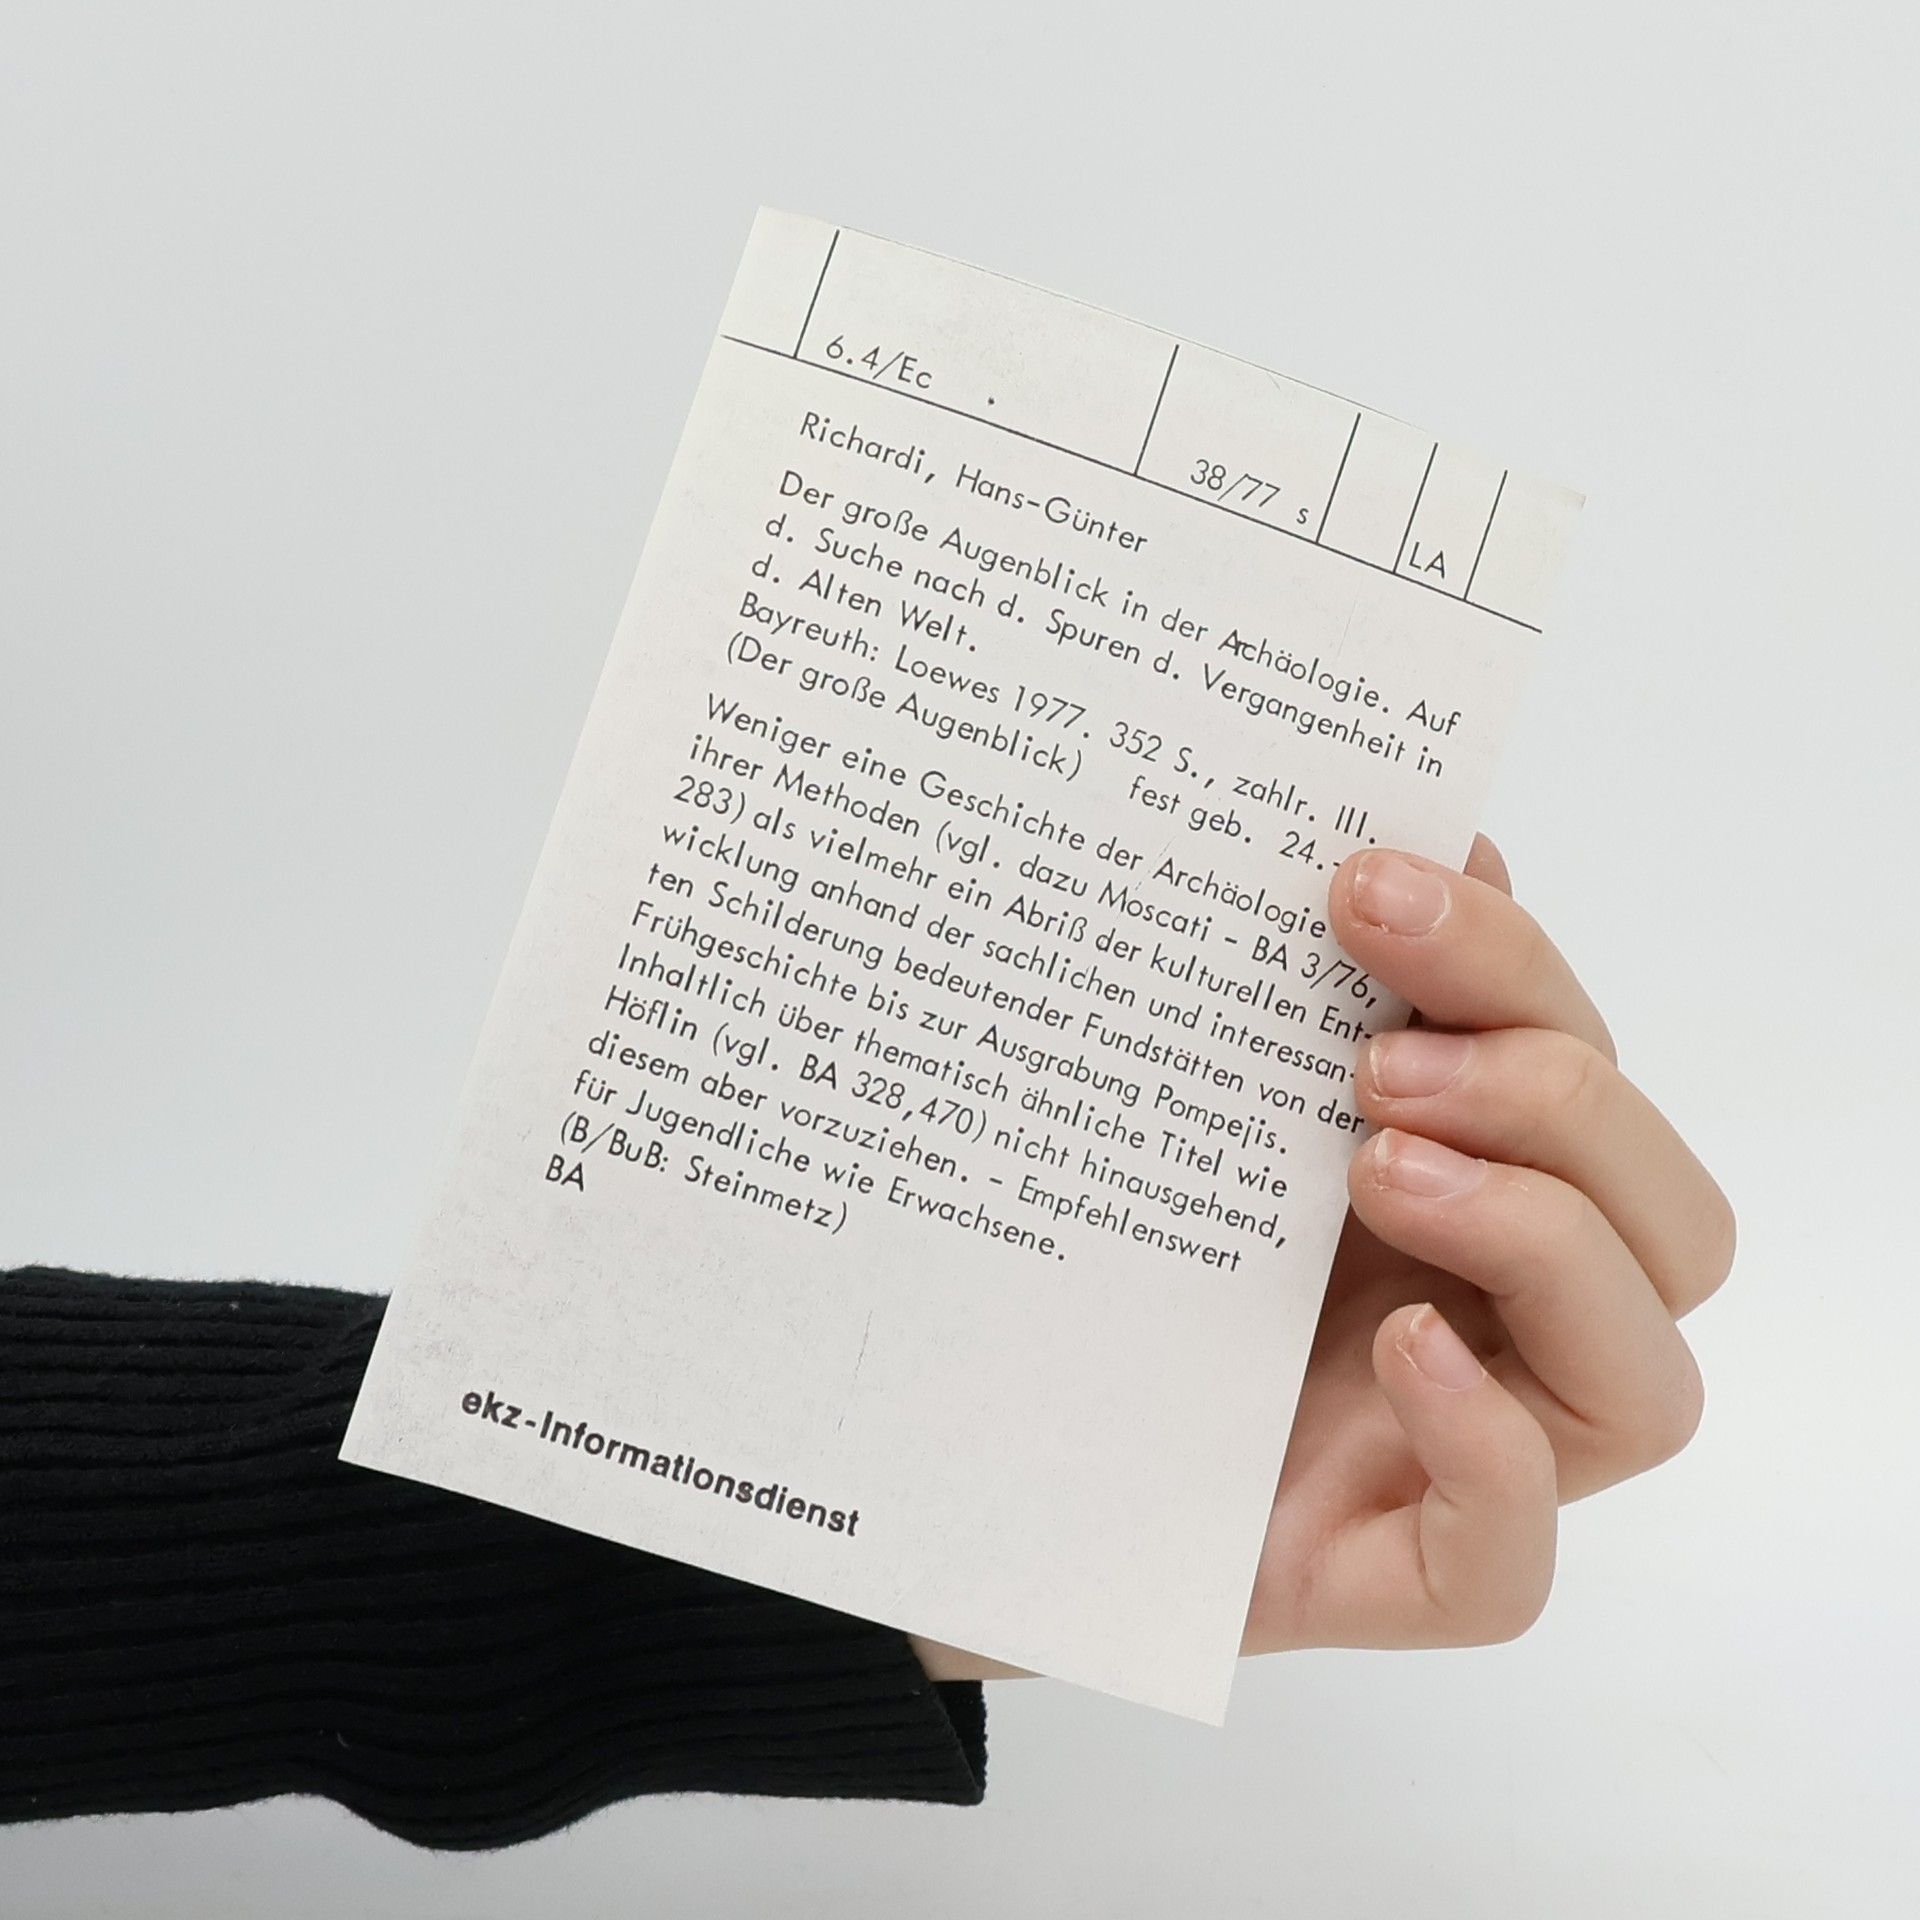 6.4/Ec . 38/77 s LA
Richardi, Hans-Günter
Der große Augenblick in der Archäologie. Auf
d. Suche nach d. Spuren d. Vergangenheit in
d. Alten Welt.
Bayreuth: Loewes 1977. 352 S., zahlr. Ill.
(Der große Augenblick) fest geb. 24.-
Weniger eine Geschichte der Archäologie
ihrer Methoden (vgl. dazu Moscati - BA 3/76,
283) als vielmehr ein Abriß der kulturellen Ent-
wicklung anhand der sachlichen und interessan-
ten Schilderung bedeutender Fundstätten von der
Frühgeschichte bis zur Ausgrabung Pompejis.
Inhaltlich über thematisch ähnliche Titel wie
Höflin (vgl. BA 328,470) nicht hinausgehend,
diesem aber vorzuziehen. - Empfehlenswert
für Jugendliche wie Erwachsene.
(B/BuB: Steinmetz)
BA
ekz-Informationsdienst